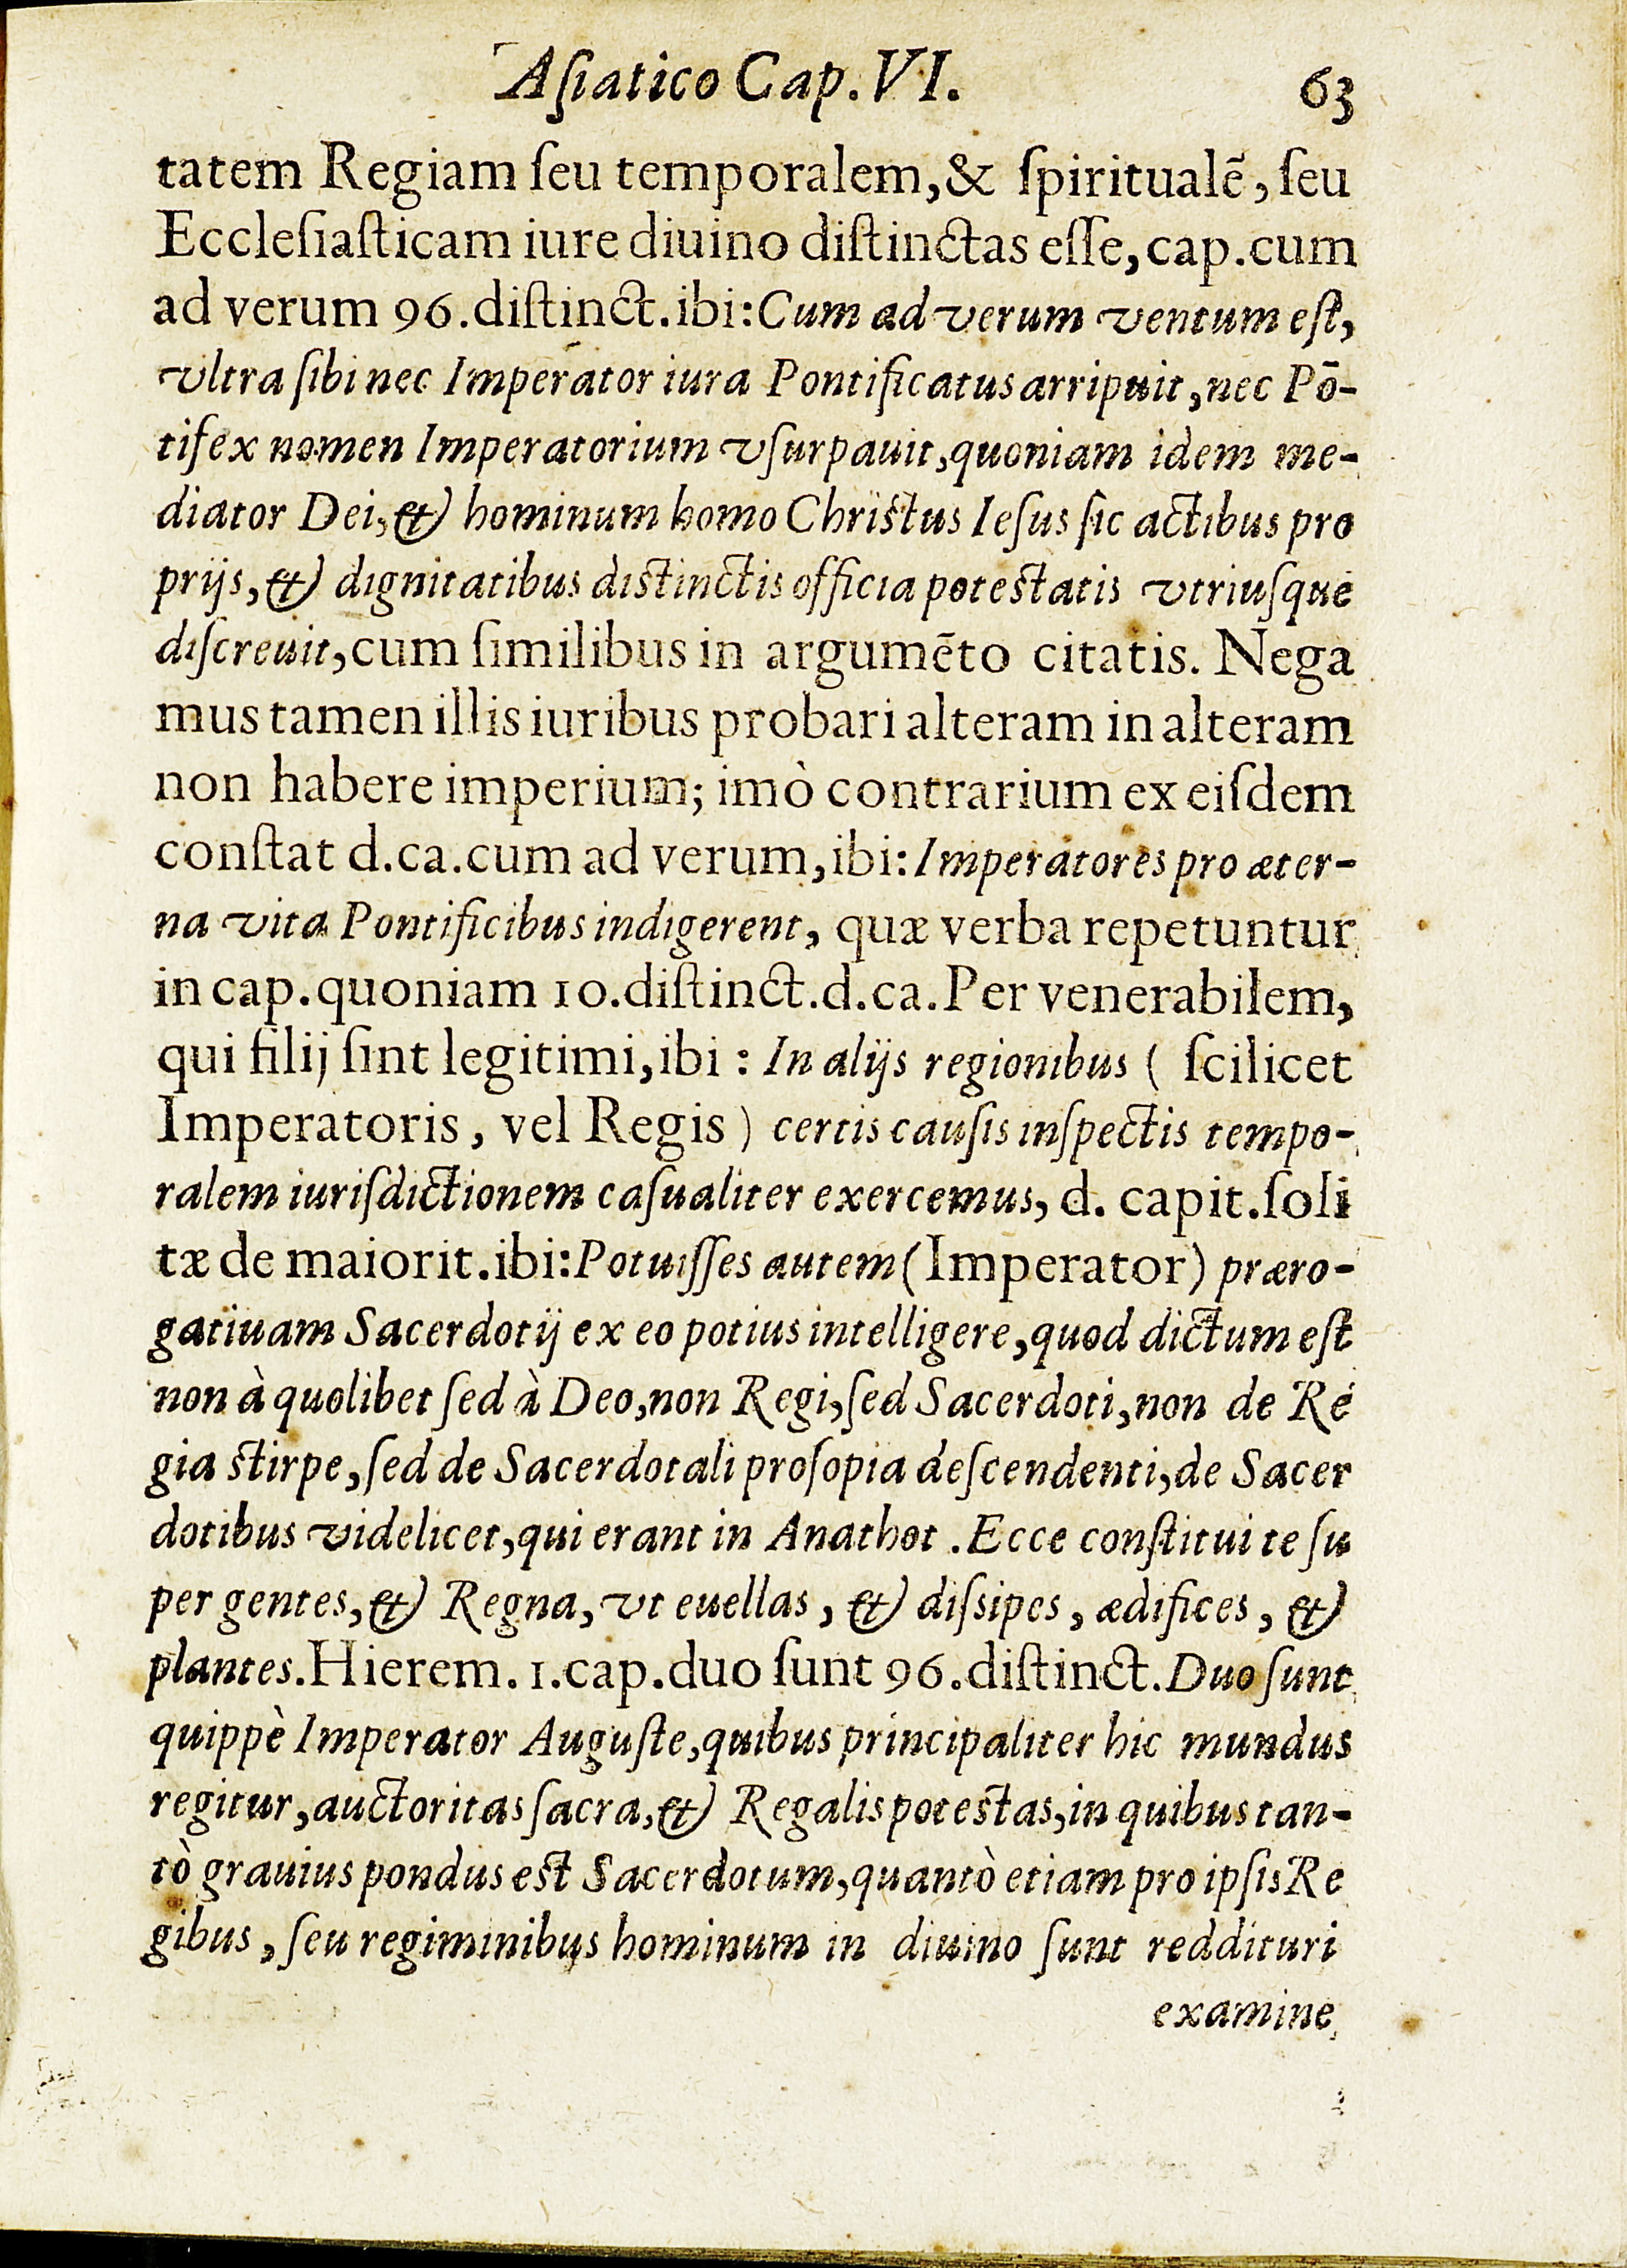 Aſiatico Cap. VI. 63
tatem Regiam ſeu temporalem, & ſpiritualẽ, ſeu
Eccleſiaſticam iure diuino diſtinctas eſſe, cap. cum
ad verum 96. diſtinct. ibi: Cum ad verum ventum eſt,
vltra ſibi nec Imperator iura Pontificatus arripuit, nec Põ-
tifex nomen Imperatorium vſurpauit, quoniam idem me-
diator Dei, & hominum homo Chriſtus Ieſus ſic actibus pro
prijs, & dignitatibus diſtinctis officia poteſtatis vtriuſque
diſcreuit, cum ſimilibus in argumẽto citatis. Nega
mus tamen illis iuribus probari alteram in alteram
non habere imperium; imò contrarium ex eiſdem
conſtat d. ca. cum ad verum, ibi: Imperatores pro æter-
na vita Pontificibus indigerent, quæ verba repetuntur
in cap. quoniam 10. diſtinct. d. ca. Per venerabilem,
qui filij ſint legitimi, ibi : In alijs regionibus ( ſcilicet
Imperatoris, vel Regis ) certis cauſis inſpectis tempo-
ralem iuriſdictionem caſualiter exercemus, d. capit. ſoli
tæ de maiorit. ibi: Potuiſſes autem (Imperator) præro-
gatiuam Sacerdotij ex eo potius intelligere, quod dictum eſt
non à quolibet ſed à Deo, non Regi, ſed Sacerdoti, non de Re
gia ſtirpe, ſed de Sacerdotali proſopia deſcendenti, de Sacer
dotibus videlicet, qui erant in Anathot. Ecce conſtitui te ſu
per gentes, & Regna, vt euellas, & diſsipes, ædifices, &
plantes. Hierem. 1. cap. duo ſunt 96. diſtinct. Duo ſunt
quippè Imperator Auguſte, quibus principaliter hic mundus
regitur, auctoritas ſacra, & Regalis poteſtas, in quibus tan-
tò grauius pondus eſt Sacerdotum, quantò etiam pro ipſis Re
gibus, ſeu regiminibus hominum in diuino ſunt reddituri
examine